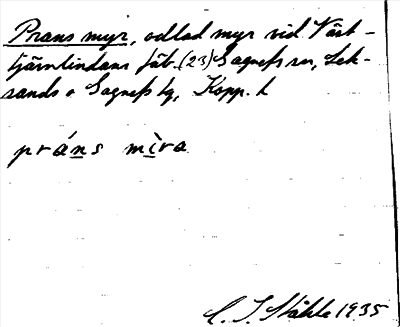 Prans myr, odlad myr vid Väst-
tjärnlindans fäb. (23) Gagnefs sn, Lek-
sands o Gagnefs tg, Kopp. l
práns mìra
C. I. Ståhle 1935